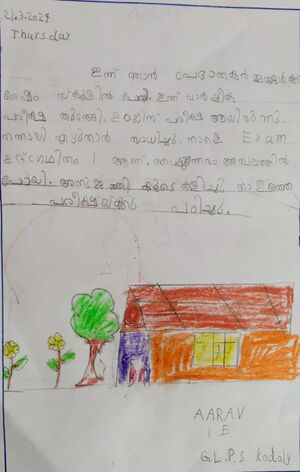 21.3.2024
Thursday
ഇന്ന് ഞാൻ
ശേഷം സ്കൂളിൽ പോയി. ഇന്ന് വാർഷിക
പരീക്ഷ തുടങ്ങി. ഇംഗ്ലീഷ് പരീക്ഷ ആയിരുന്നു.
നന്നായി എഴുതാൻ സാധിച്ചു. നാളെ Exam
ഉദ്ഗ്രഥിതം 1 ആണ്. വൈകുന്നേരം അമ്പലത്തിൽ
പോയി. അനിജത്തി കൂടെ കളിച്ചു. നാളത്തെ
പരീക്ഷയ്ക്ക് പഠിച്ചു.
AARAV
1 E
G.L.P.S Kodaly